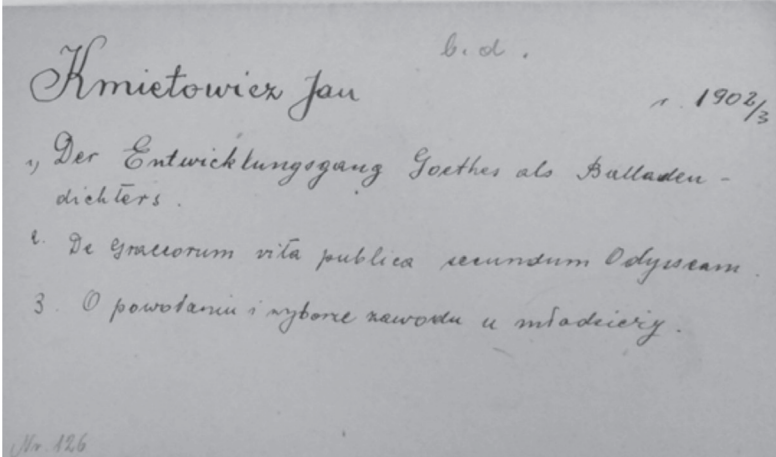 b. d.
Kmietowicz Jan
r. 1902/3
1, Der Entwicklungsgang Goethes als Balladen-
dichters.
2. De Graecorum vita publica secundum Odysseam.
3. O powołaniu i wyborze zawodu u młodzieży.
Nr. 126